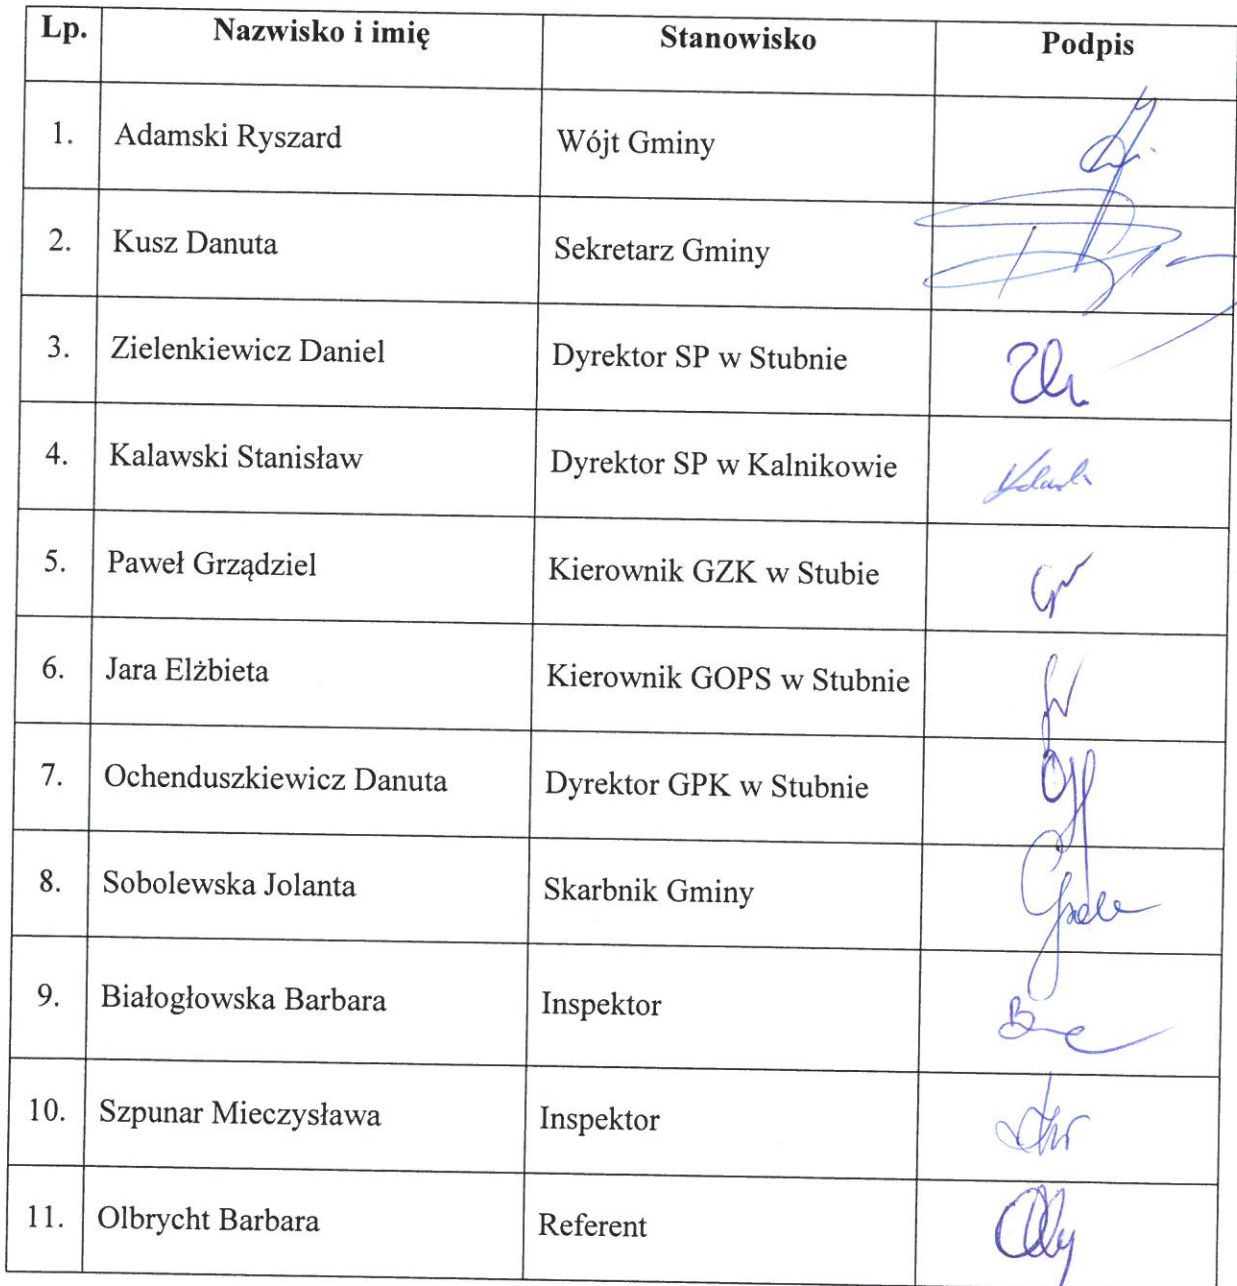 Lp. Nazwisko i imię Stanowisko Podpis
1. Adamski Ryszard Wójt Gminy
2. Kusz Danuta Sekretarz Gminy
3. Zielenkiewicz Daniel Dyrektor SP w Stubnie
4. Kalawski Stanisław Dyrektor SP w Kalnikowie
5. Paweł Grządziel Kierownik GZK w Stubie
6. Jara Elżbieta Kierownik GOPS w Stubnie
7. Ochenduszkiewicz Danuta Dyrektor GPK w Stubnie
8. Sobolewska Jolanta Skarbnik Gminy
9. Białogłowska Barbara Inspektor
10. Szpunar Mieczysława Inspektor
11. Olbrycht Barbara Referent